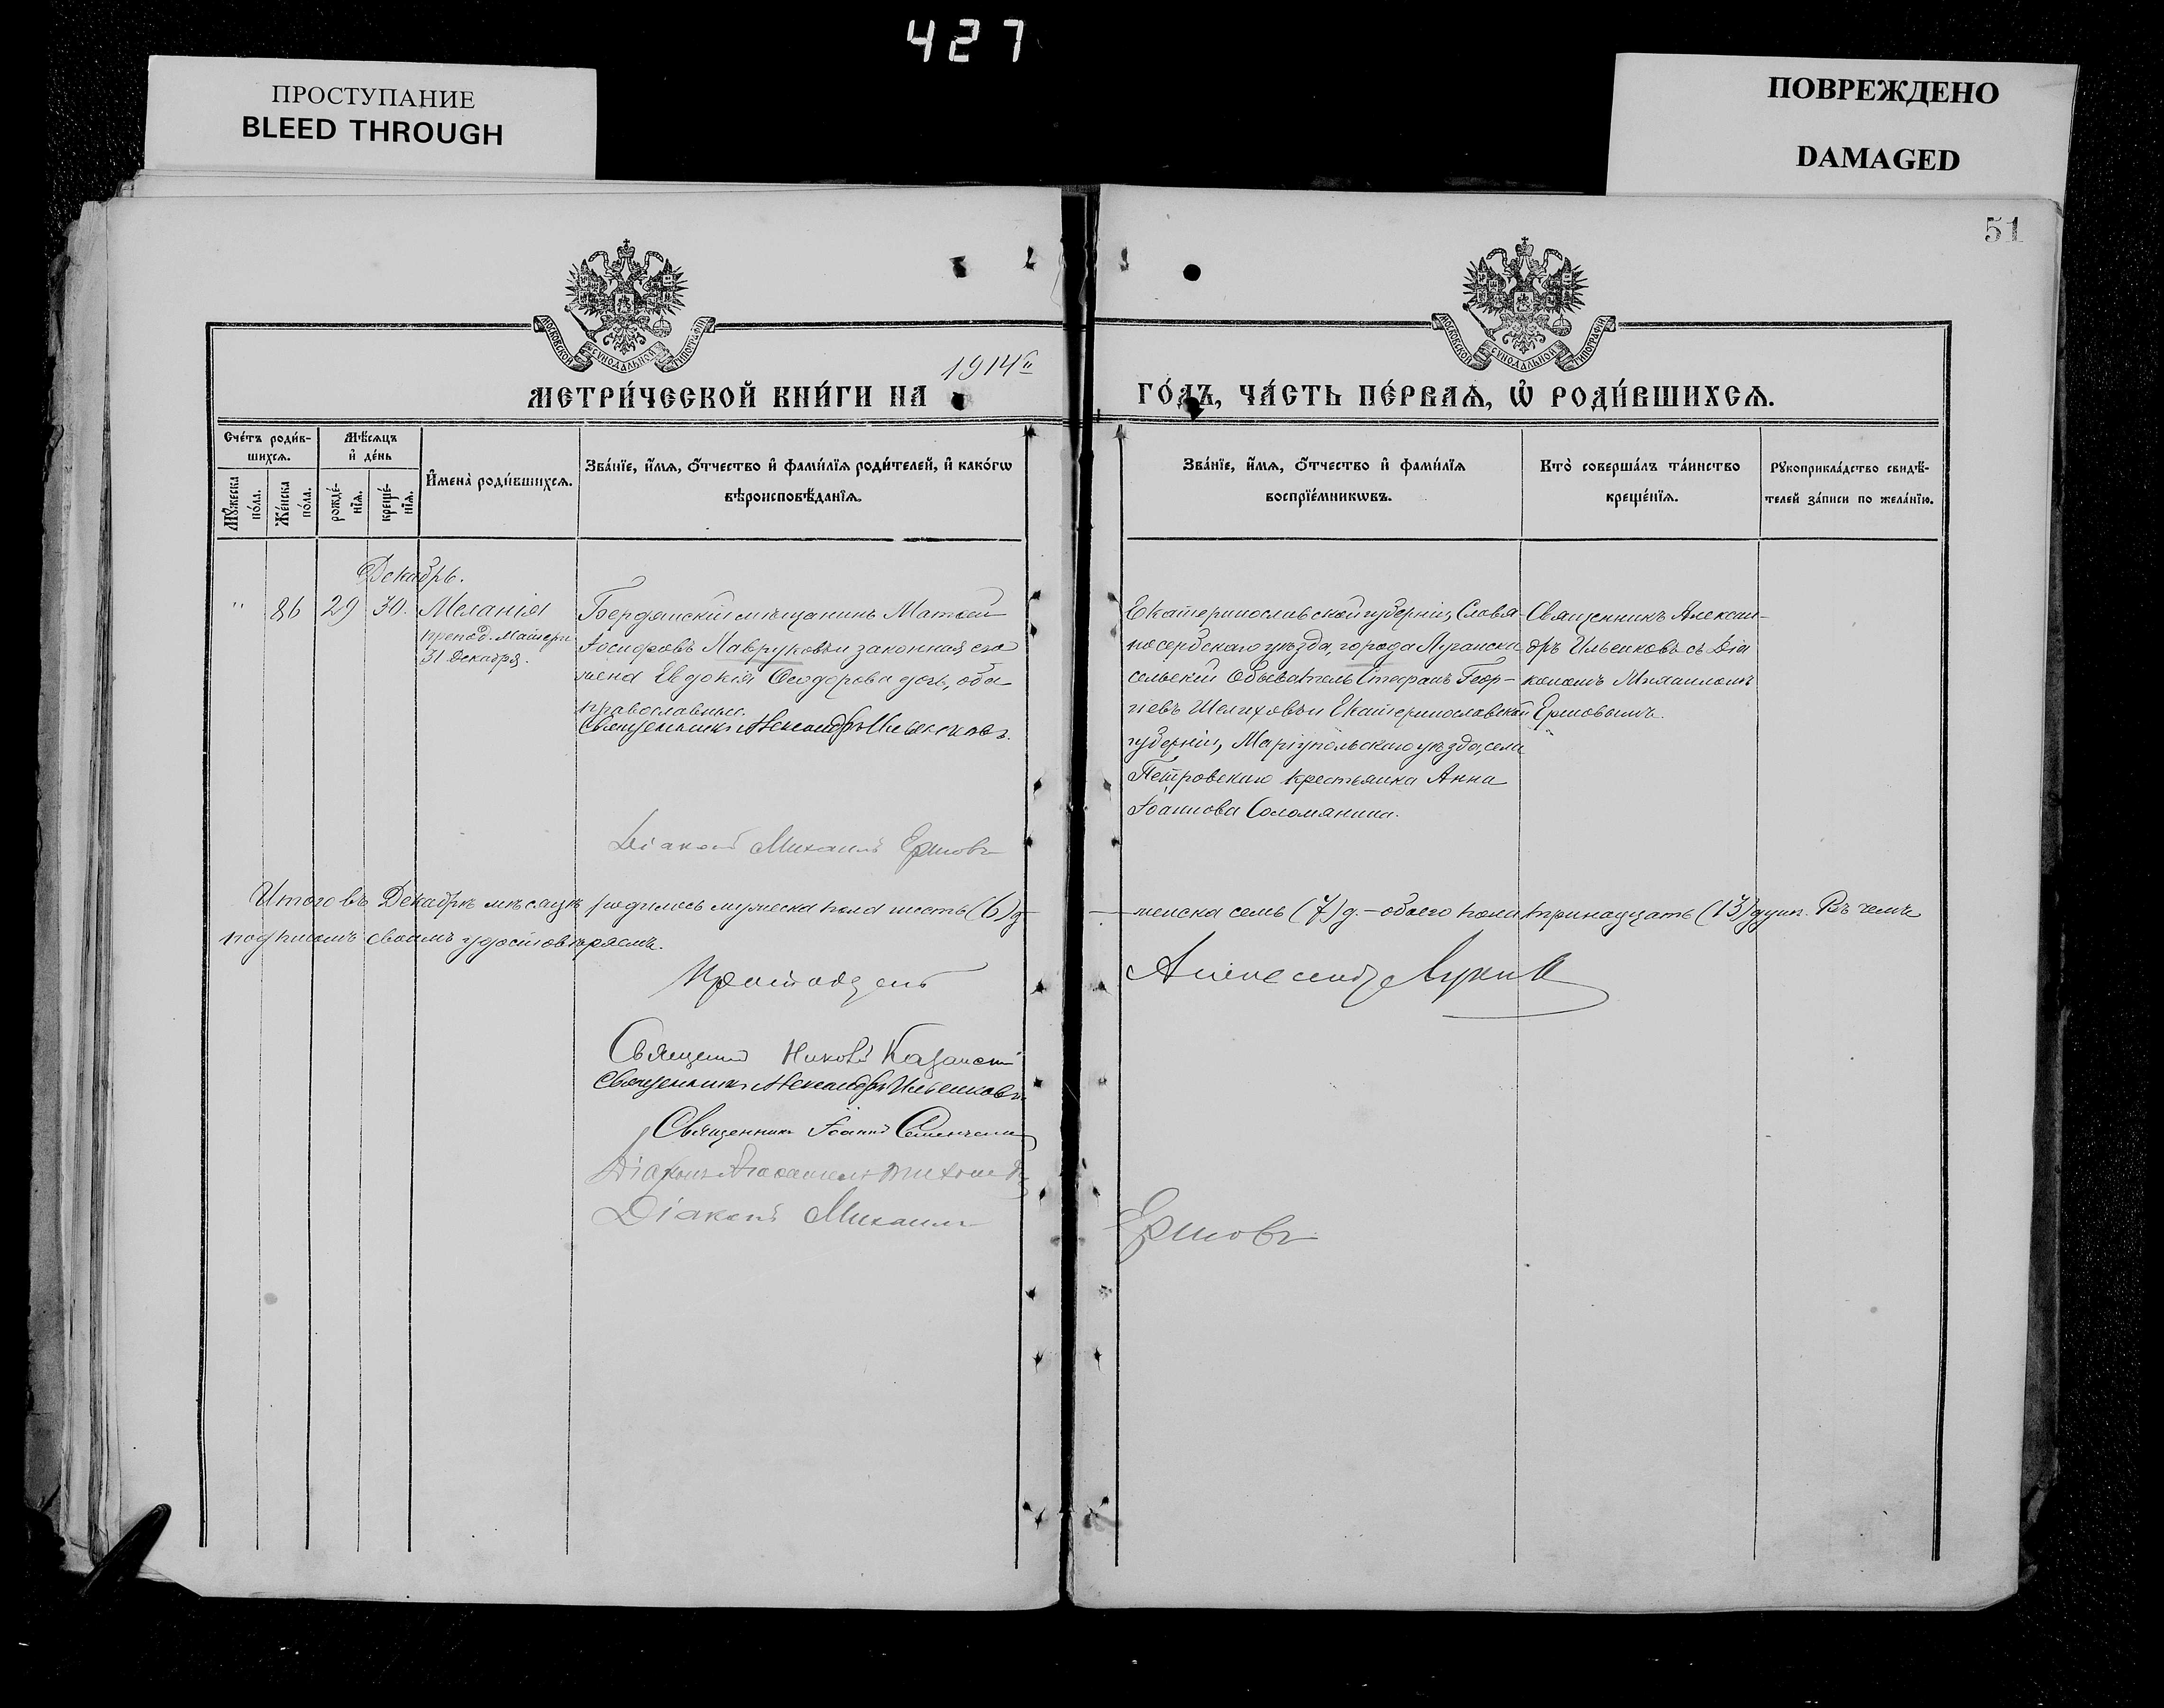 427
ПРОСТУПАНИЕ
BLEED THROUGH
ПОВРЕЖДЕНО
DAMAGED
51
МОСКОВСКОЙ СѴНОДАЛЬНОЙ ТИПОГРАФІИ
МОСКОВСКОЙ СѴНОДАЛЬНОЙ ТИПОГРАФІИ
МЕТРИ́ЧЕСКОЙ КНИ́ГИ НА 1914й ГО́ДЪ, ЧА́СТЬ ПЕ́РВАѦ, Ѽ РОДИ́ВШИХСѦ.
Сче́тъ роди́в-
шихсѧ.
Мꙋ́жеска
по́ла.
Же́нска
по́ла.
Мѣ́сѧцъ
и҆ де́нь
рожде́-
нїѧ.
креще́-
нїѧ.
И҆мена̀ роди́вшихсѧ.
Зва́нїе, и҆́мѧ, ѻ҆́тчество и҆ фами́лїѧ роди́телей, и҆ како́гѡ
вѣроисповѣ́данїѧ.
Зва́нїе, и҆́мѧ, ѻ҆́тчество и҆ фами́лїѧ
воспрїе́мникѡвъ.
Кто̀ соверша́лъ та́инство
креще́нїѧ.
Рꙋкоприкла́дство свидѣ́-
телей за́писи по жела́нїю.
Декабрь.
" 86 29 30. Меланія
препод. Матери
31 Декабря.
Бердянскій мѣщанинъ Матѳей
Іосифовъ Мавруковъ и законная его
жена Евдокія Ѳеодорова дочь, оба
православные.
Священникъ Александръ Ильенковъ.
Діаконъ Михаилъ Ершовъ
Екатеринославской губерніи, Славя-
носербскаго уѣзда, города Луганска
сельскій обыватель Стефанъ Геор-
гіевъ Шелеховъ и Екатеринославской
губерніи, Маріупольскаго уѣзда, села
Петровскаго крестьянка Анна
Іоаннова Соломянина.
Священникъ Алексан-
дръ Ильенковъ съ Діа
кономъ Михаиломъ
Ершовымъ.
Итого въ Декабрѣ мѣсяцѣ родилось мужеска пола шесть (6) д - женска семь (7) д. - обоего пола тринадцать (13) душъ. Въ чемъ
подписомъ своимъ удостовѣряемъ.
Александръ Лукинъ
Священникъ Николай Казанскій
Священникъ Александръ Ильенковъ.
Священникъ Іоаннъ
Діаконъ
Діаконъ Михаилъ Ершовъ